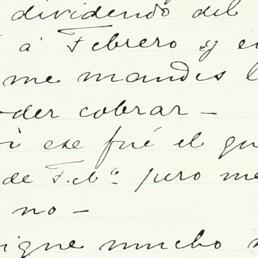 dividendo del
á Febrero y e
me mandes l
oder cobrar _
i ese fué el qu
de F.eb.º pero me
no _
igue mucho